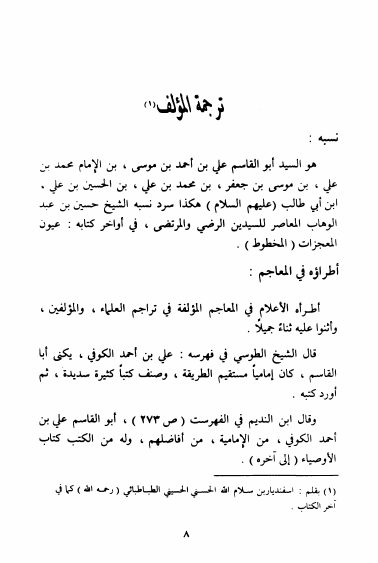 ترجمة المؤلف (١)
نسبه :
هو السيد أبو القاسم علي بن أحمد بن موسى ، بن الإمام محمد بن
علي ، بن موسى بن جعفر ، بن محمد بن علي ، بن الحسين بن علي ،
ابن أبي طالب (عليهم السلام) هكذا سرد نسبه الشيخ حسين بن عبد
الوهاب المعاصر للسيدين الرضي والمرتضى ، في أواخر كتابه : عيون
المعجزات ( المخطوط ) .
أطراؤه في المعاجم :
أطـرأه الأعلام في المعاجم المؤلفة في تراجم العلماء ، والمؤلفين ،
وأثنوا عليه ثناءً جميلاً .
قال الشيخ الطوسي في فهرسه : علي بن أحمد الكوفي ، يكنى أبا
القاسم ، كان إمامياً مستقيم الطريقة ، وصنف كتباً كثيرة سديدة ، ثم
أورد كتبه .
وقال ابن النديم في الفهرست ( ص ٢٧٣ ) ، أبو القاسم علي بن
أحمد الكوفي ، من الإمامية ، من أفاضلهم ، وله من الكتب كتاب
الأوصياء ( إلى آخره ) .
(١) بقلم : اسفنديار بن سلام الله الحسني الحسيني الطباطبائي ( رحمه الله ) كما في
آخر الكتاب .
٨